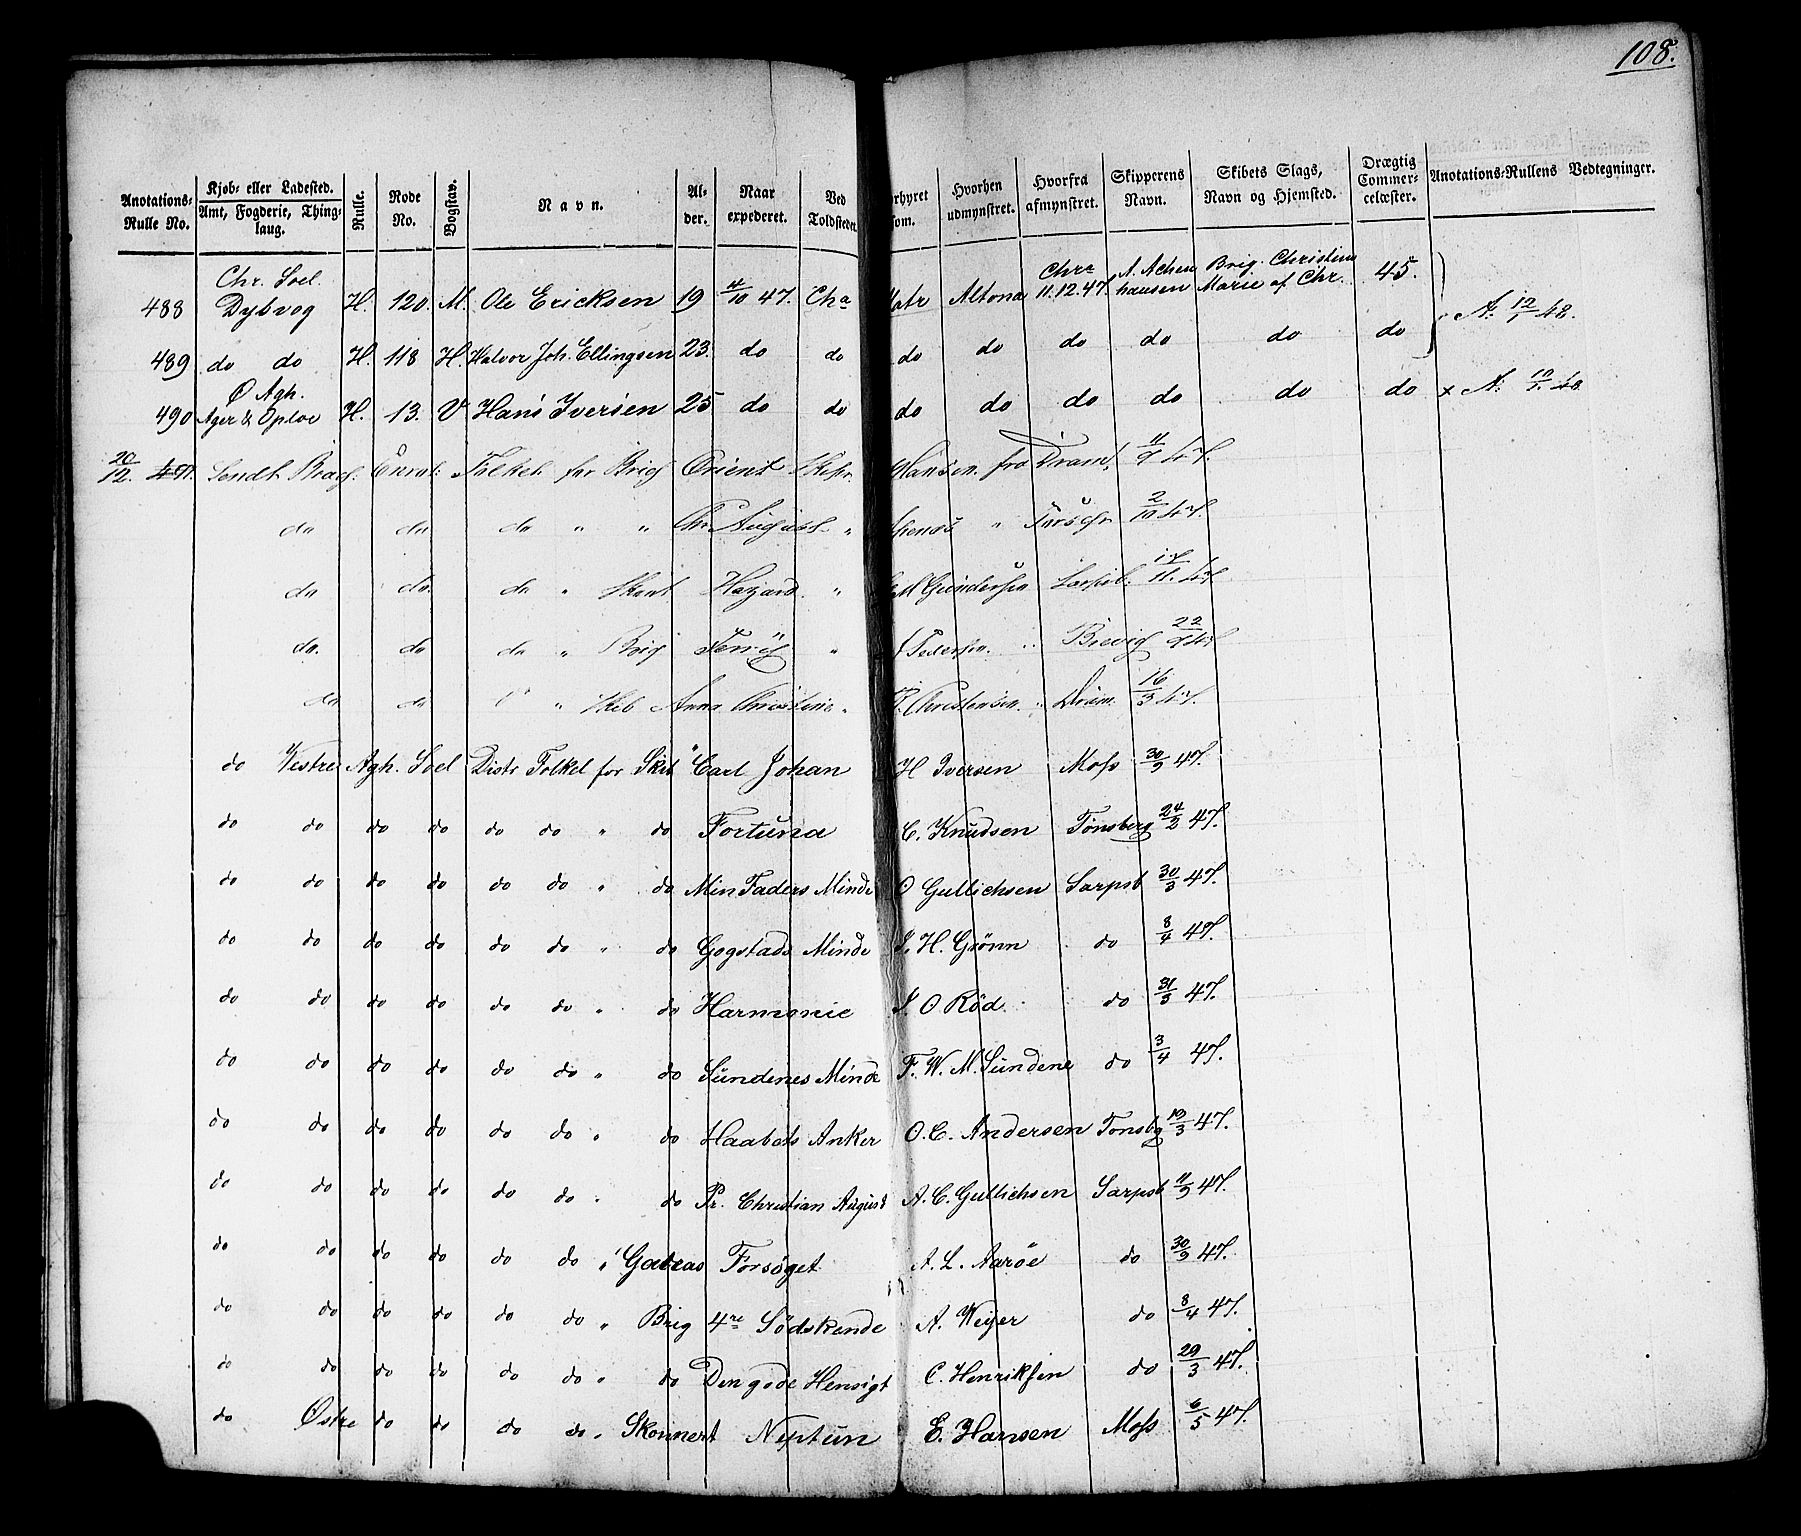 108.
Anotations-Rulle No. Kjøb- eller Ladested. Amt, Fogderie, Thinglaug. Rulle. Rode No. Bogstav. Navn. Alder. Naar expederet. Ved Toldstedet forhyret som. Hvorhen udmynstret. Hvorfra afmynstret. Skipperens Navn. Skibets Slags, Navn og Hjemsted. Drægtig Commercelæster. Anotations-Rullens Vedtegninger.
488 Chr. Soel. Dybvog H. 120. M. Ole Ericksen 19 4/10 47. Cha Matr Altona Chra 11.12.47. A. Achenhausen Brig. Christine Marie af Chr. 45. A. 12/1 48.
489 do do H. 118 H. Halvor Joh. Ellingsen 23. do do do do do do do do
490 Ø Agh. Ager & Oploe H. 13. V Hans Iversen 25 do do do do do do do do x A. 12/1 48
20/12. 491. Sendt Brag. Enrol: Folket for Brig Orient Skipr Hansen. fra Dram. 11/9 47.
do do do " " Chr August " " 2/10 47.
do do. do " Skont Hazard " M Gundersen Sarpsb. 17/11. 47
do. do do " Brig " Pedersen. " Brevig 22/9 47
do do " " Skib Anna Christine " Christensen. " Dram 16/3 47.
do Vestre Agh. Soel Distr Folkel for Skib "Carl Johan H Iversen Moss 30/9 47.
do do do do do do " do Fortuna C. Knudsen Tønsberg 24/2 47.
do do do do do do " do Min Faders Minde O Gullichsen Sarpsb 30/3 47.
do do do do do do " do Gogstads Minde J. H. Grönn do 8/4 47.
do do do do do do " do Harmonie J. O Röd. do 31/3 47.
do do do do do do " do Sündenes Minde F. W. M. Sündene do 3/4 47.
do do do do do do " do Haabets Anker O. C. Andersen Tonsbg 19/3 47.
do do do do do do " do Pr. Christian August A. C. Gullichsen Sarpsb 11/9 47.
do do do do do do " Galeas Forsöget A. L. Aaröe do 30/9 47.
do do do do do do " Brig 4re Södskende A. Weyer do 8/4 47.
do do do do do do " do Den gode Hensigt C. Henriksen do 29/3 47.
do Østre do do do do " Skonnert Neptün E. Hansen Moss 6/5 47.